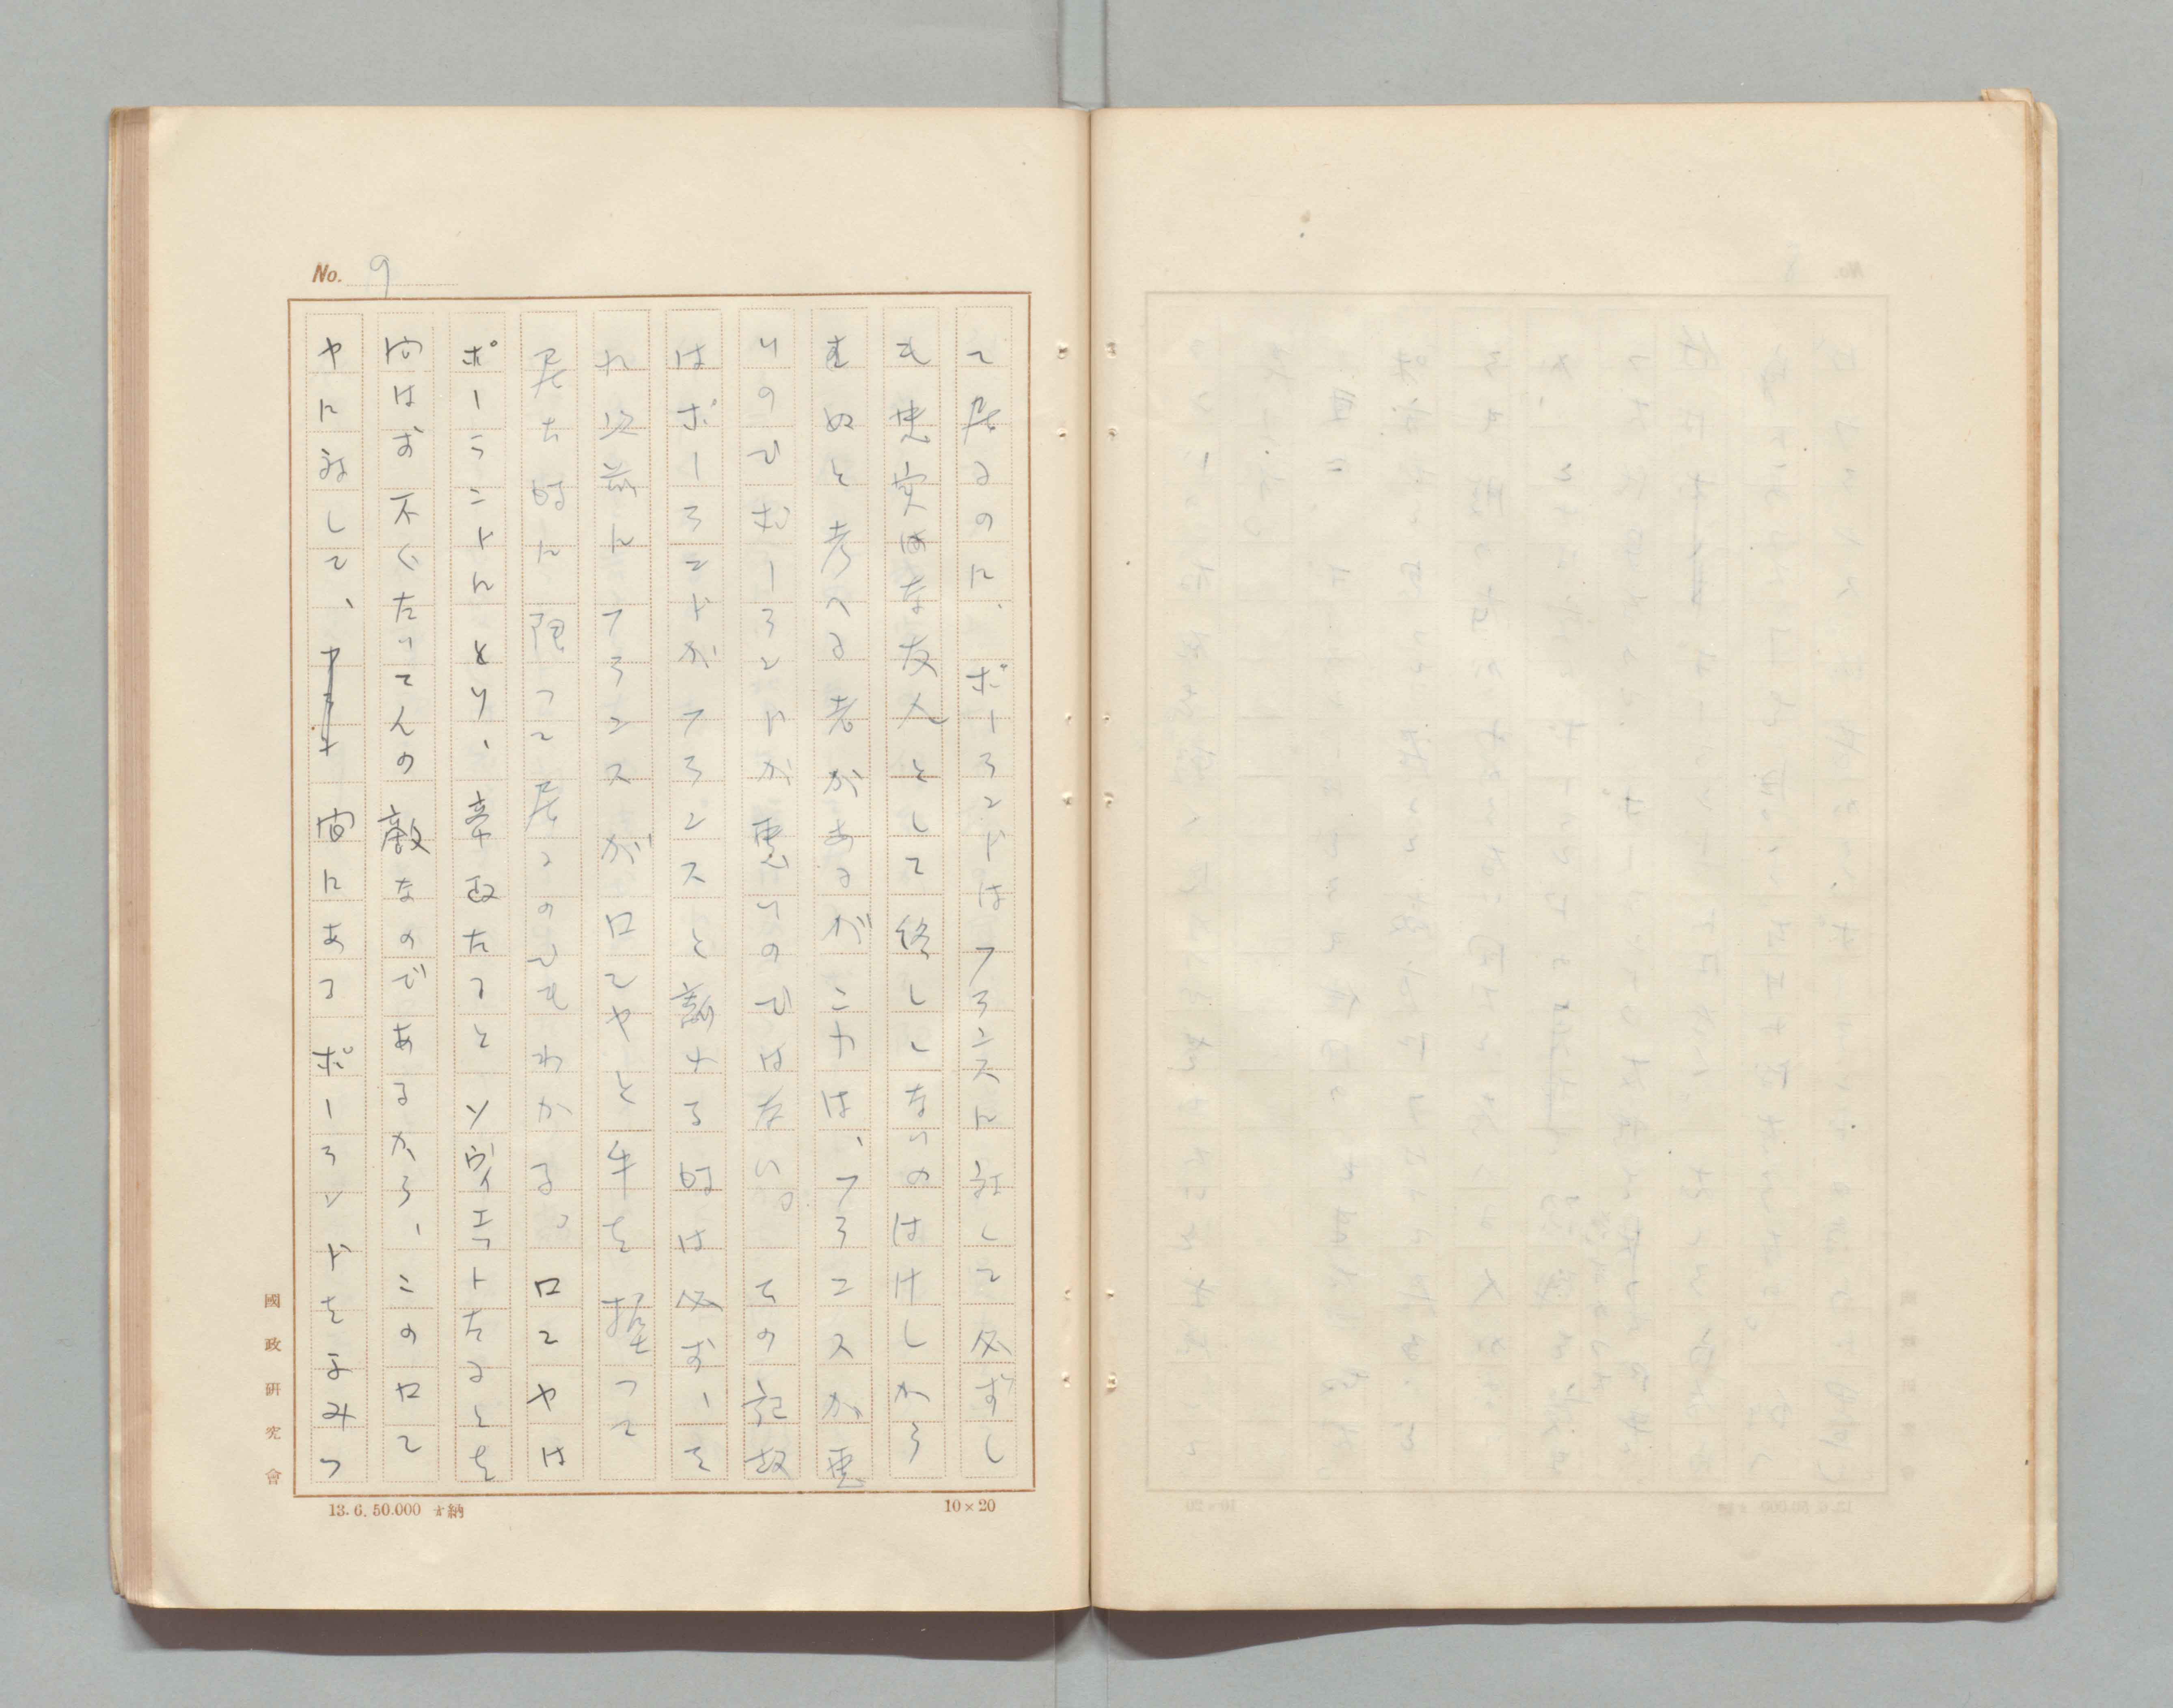 No. 9
て居るのに、ポーランドはフランスに対して必ずし
も忠実な友人として終始しないのはけしから
むぬと考へる者があるがこれは、フランスが悪
いのでポーランドが悪いのではない。その証拠
はポーランドがフランスと離れる時は必ず、そ
れ以前にフランスがロシヤと手を握つて
居た時に限つて居るのでもわかる。ロシヤは
ポーランドにとり、帝政たるとソヴィエットたるとを
問はず不ぐたいてんの敵なのであるから、このロシ
ヤに対して、間にあるポーランドをふみつ
國政研究會
13. 6. 50.000 納
10×20